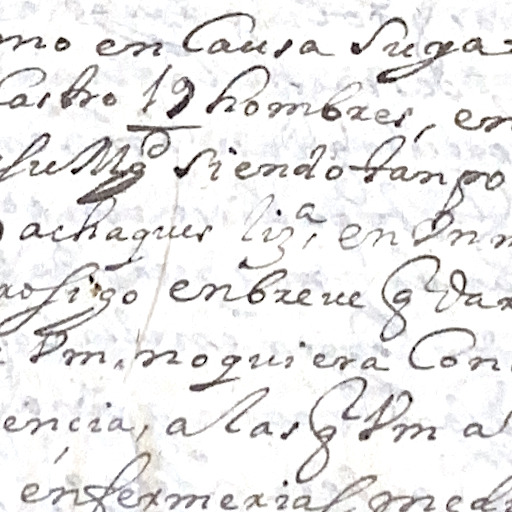 mo en Causa Suya
Castro 19 hombres, en
su Mgd siendo tan po
achaques liza, en Vn
rosigo en breve q dar
Vm, no quiera Con
encia, a las q Vm a
enfermerias, med